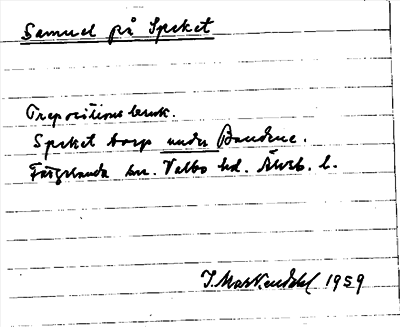 Samuel på Speket
Prepositionsbruk.
Speket torp under Bandene.
Färgelanda sn. Valbo hd. Älvsb. l.
1959